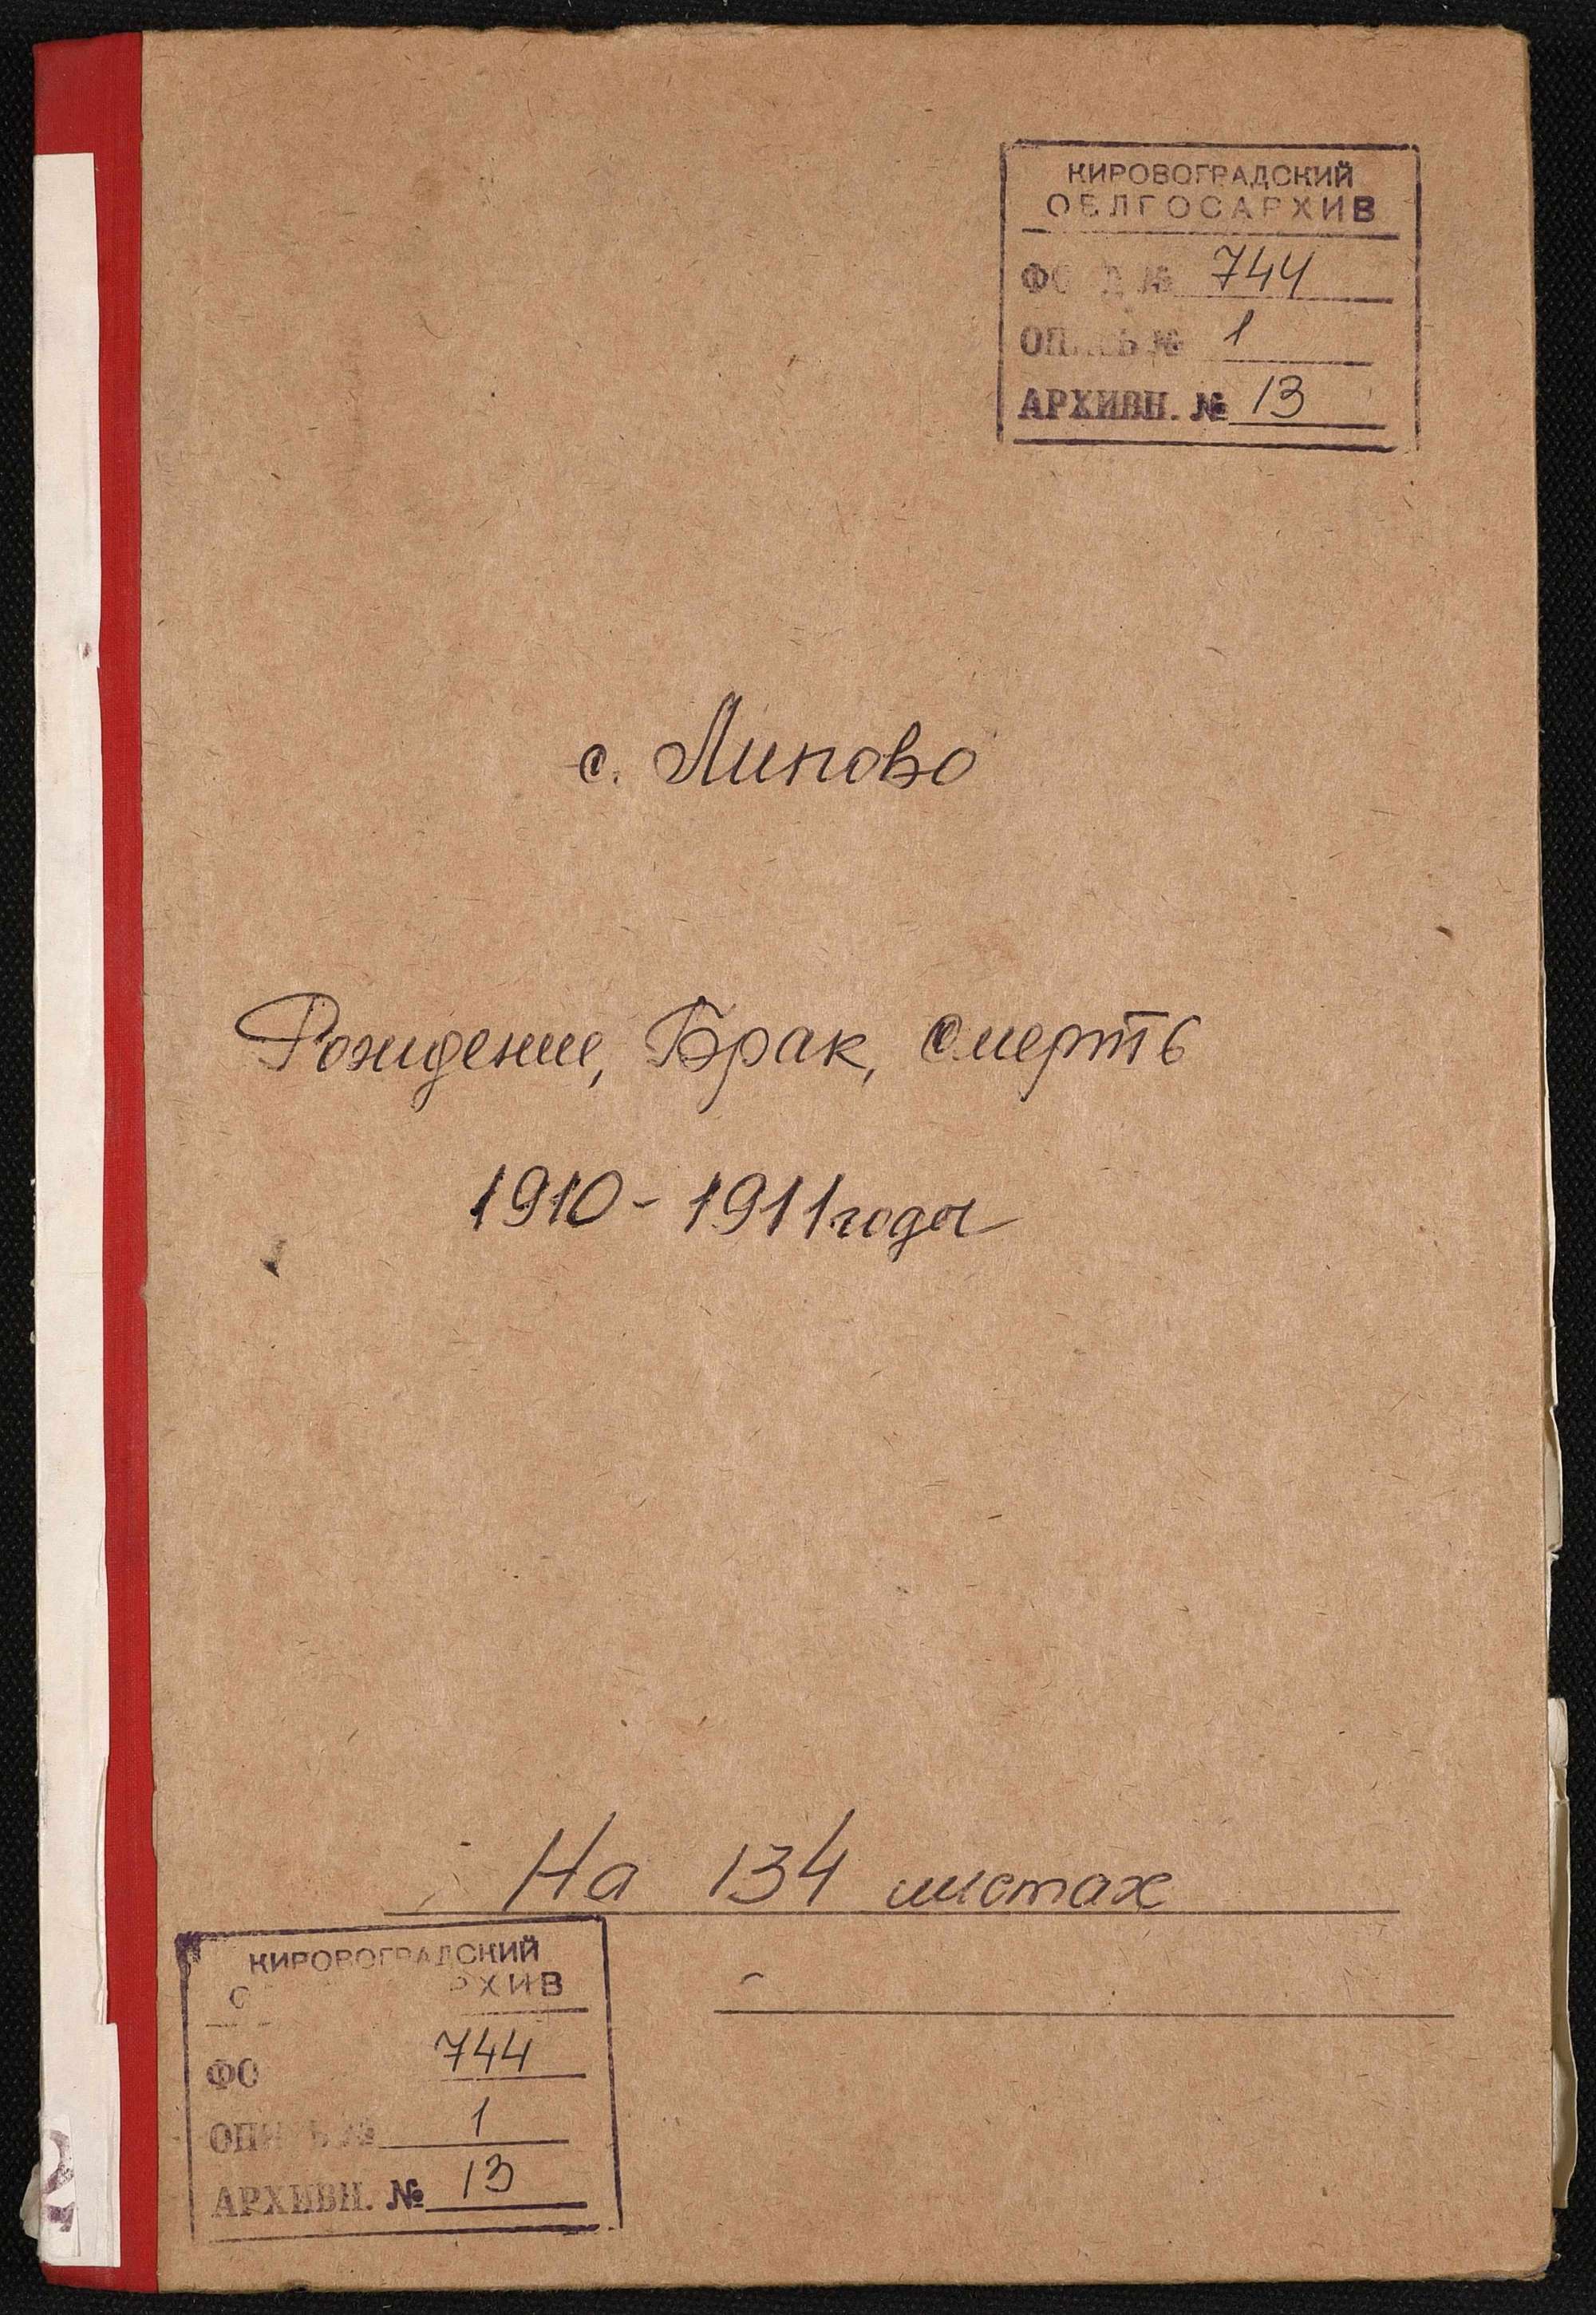 КИРОВОГРАДСКИЙ
ОБЛГОСАРХИВ
ФОНД № 744
ОПИСЬ № 1
АРХИВН. № 13
с. Липово
Рождение, Брак, Смерть
1910 - 1911 годы
На 134 листах
КИРОВОГРАДСКИЙ
ОБЛГОСАРХИВ
ФОНД № 744
ОПИСЬ № 1
АРХИВН. № 13